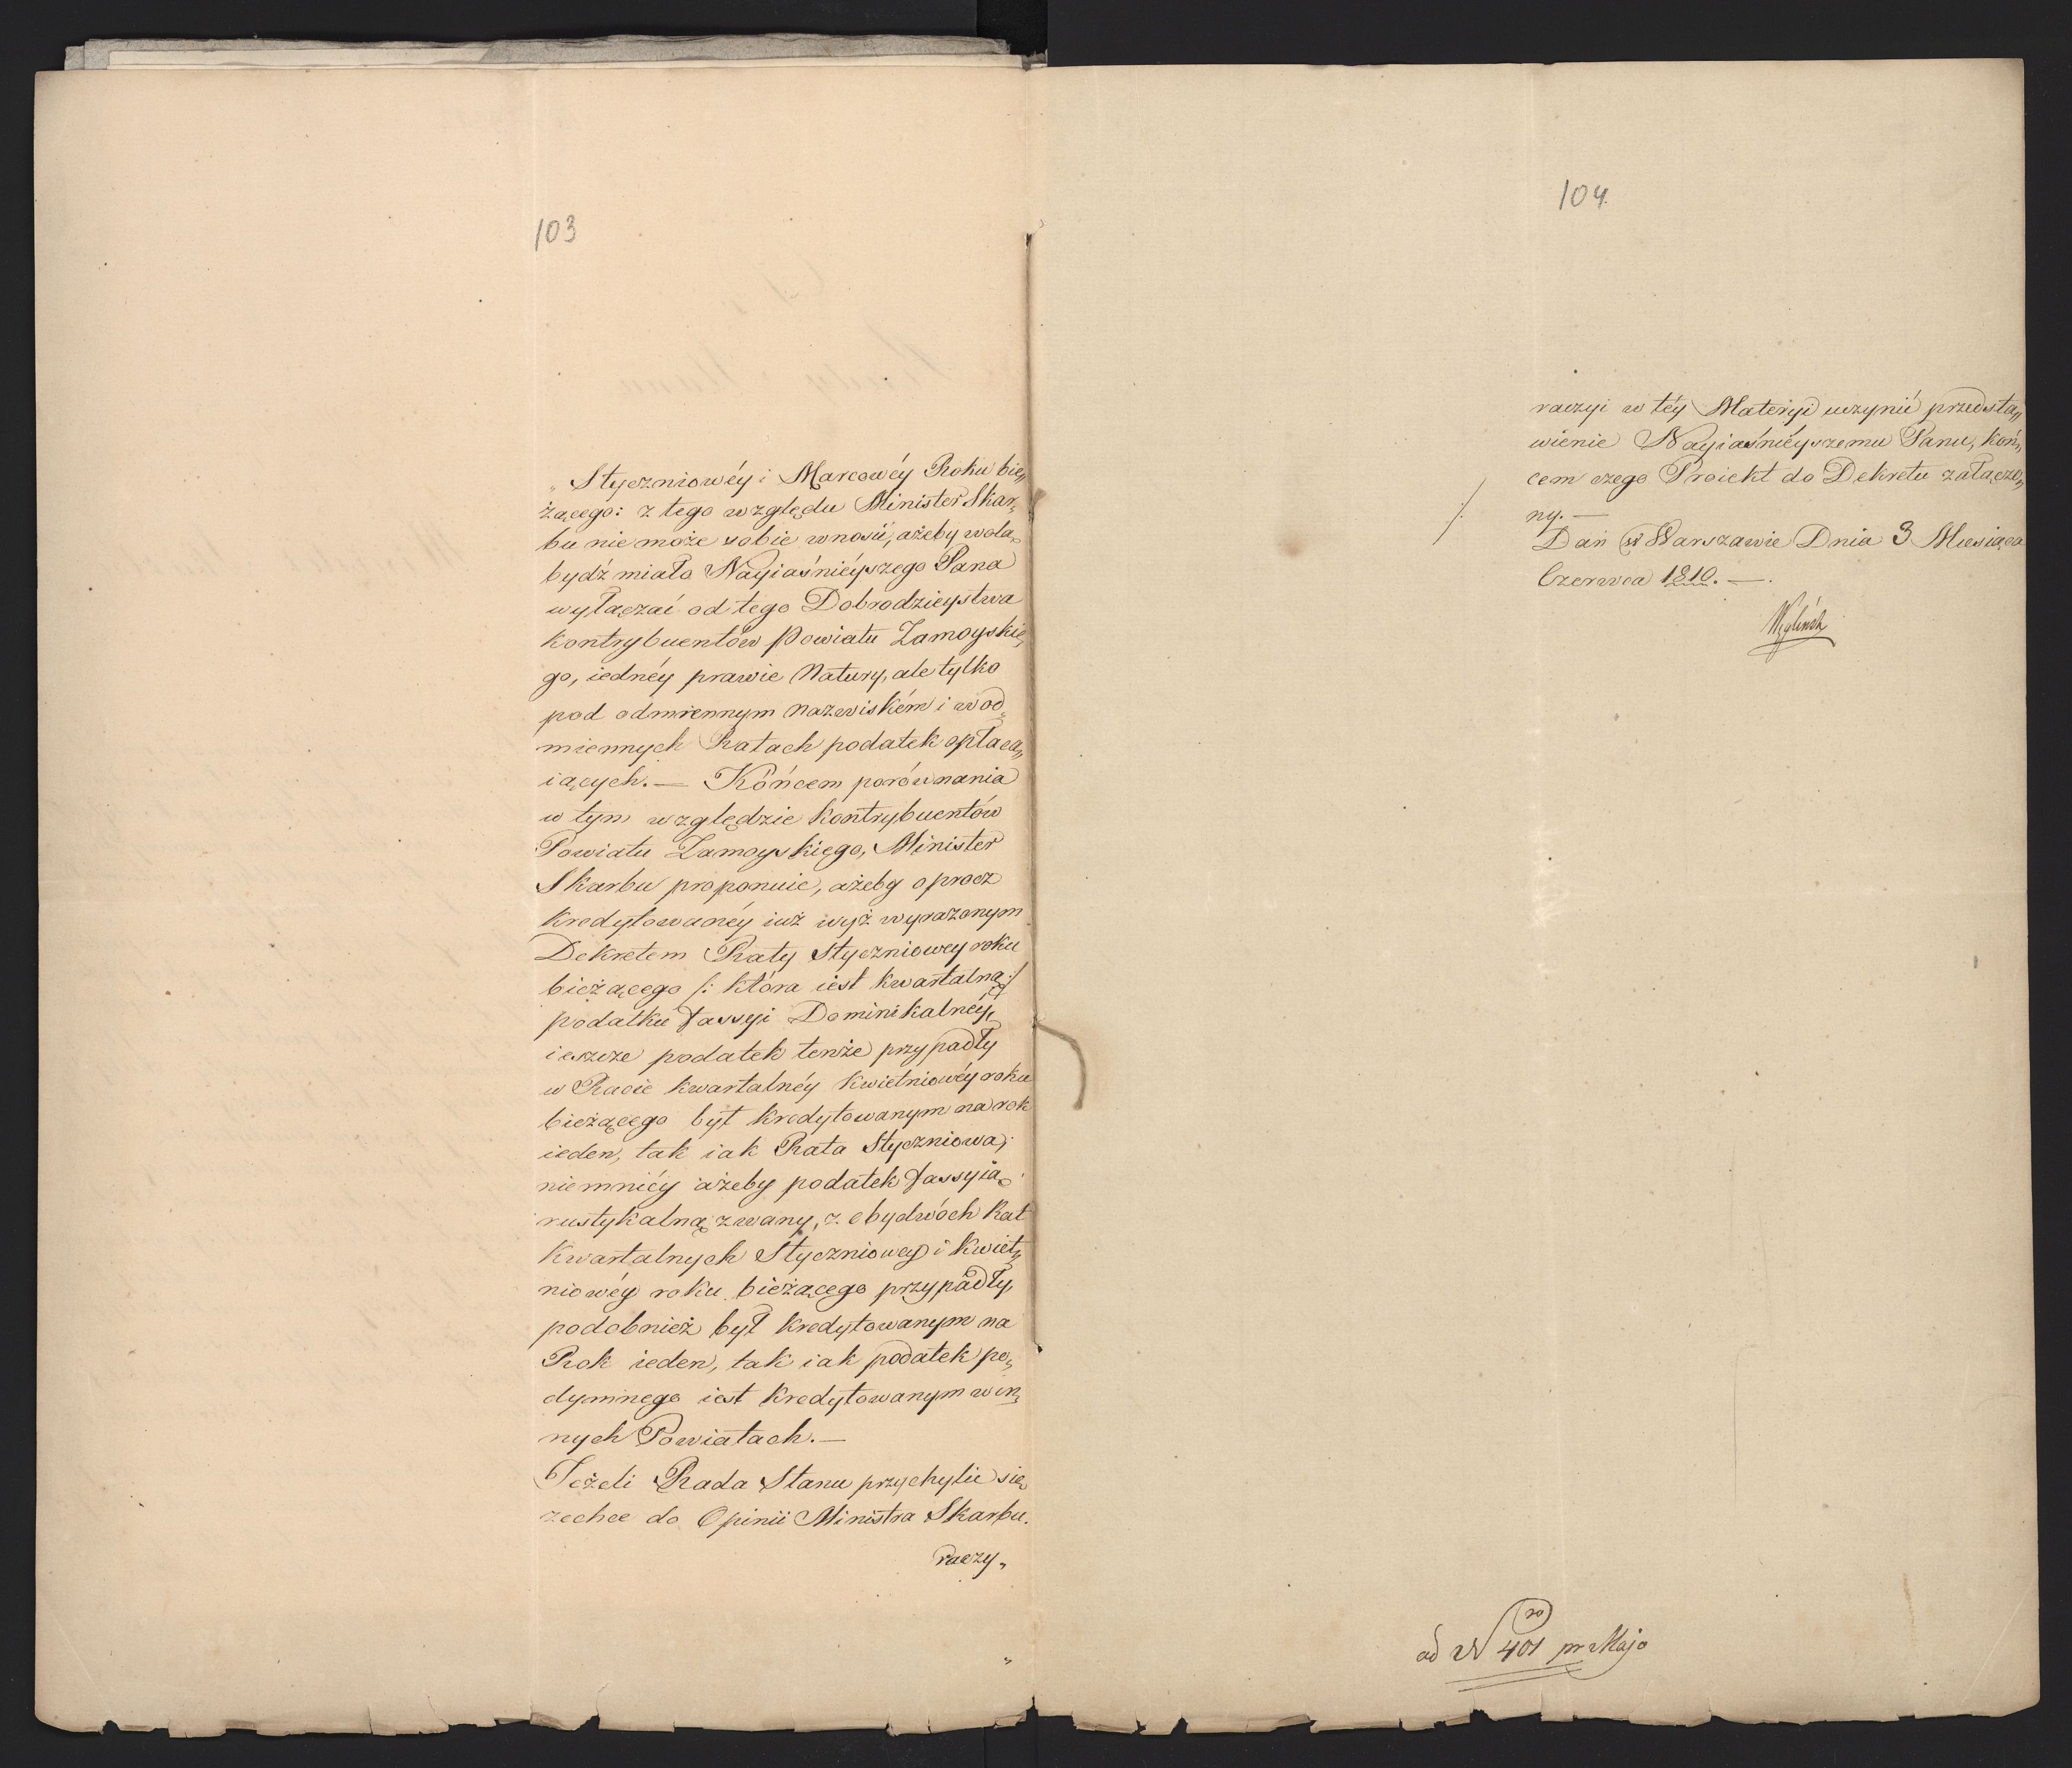 103
„Styczniowéy i Marcowéy Roku bie„
żącego: z tego względu Minister Skar„
bu nie może sobie wnosić, ażeby wola
bydź miała Nayiaśnieyszego Pana
wyłączać od tego Dobrodzieystwa
kontrybuentów Powiatu Zamoyskie„
go, iednéy prawie Natury, ale tylko
pod odmiennym nazwiském i w od„
miennych Ratach podatek opłaca„
iących. — Końcem porównania
w tym względzie kontrybuentów
Powiatu Zamoyskiego, Minister
Skarbu proponuie, ażeby oprocz
kredytowanéy iuż wyż wyrazonym
Dekretem Raty Styczniowey roku
bieżącego /: która iest kwartalną :/
podatku fassyi Dominikalnéy,
ieszcze podatek tenże przypadły
w Racie kwartalnéy Kwietniowéy roku
bieżącego był kredytowanym na rok
ieden, tak iak Rata Styczniowa;
niemniéy ażeby podatek fassyią
rustykalną zwany, z obydwóch Rat
kwartalnych Styczniowey i Kwiet„
niowéy roku bieżącego przypadły,
podobnież był kredytowanym na
Rok ieden, tak iak podatek po„
dymnego iest kredytowanym w in„
nych Powiatach. —
Jeżeli Rada Stanu przychylić się
zechce do Opinii Ministra Skarbu.
raczy„
104
raczyi w téy Materyi uczynić przedsta„
wienie Nayiaśniéyszemu Panu, koń„
cem czego Proiekt do Dekretu załączo„
ny. —
Dań w Warszawie Dnia 3 Miesiąca
Czerwca 1810. —
Węgleński
ad No 401 pr Majo